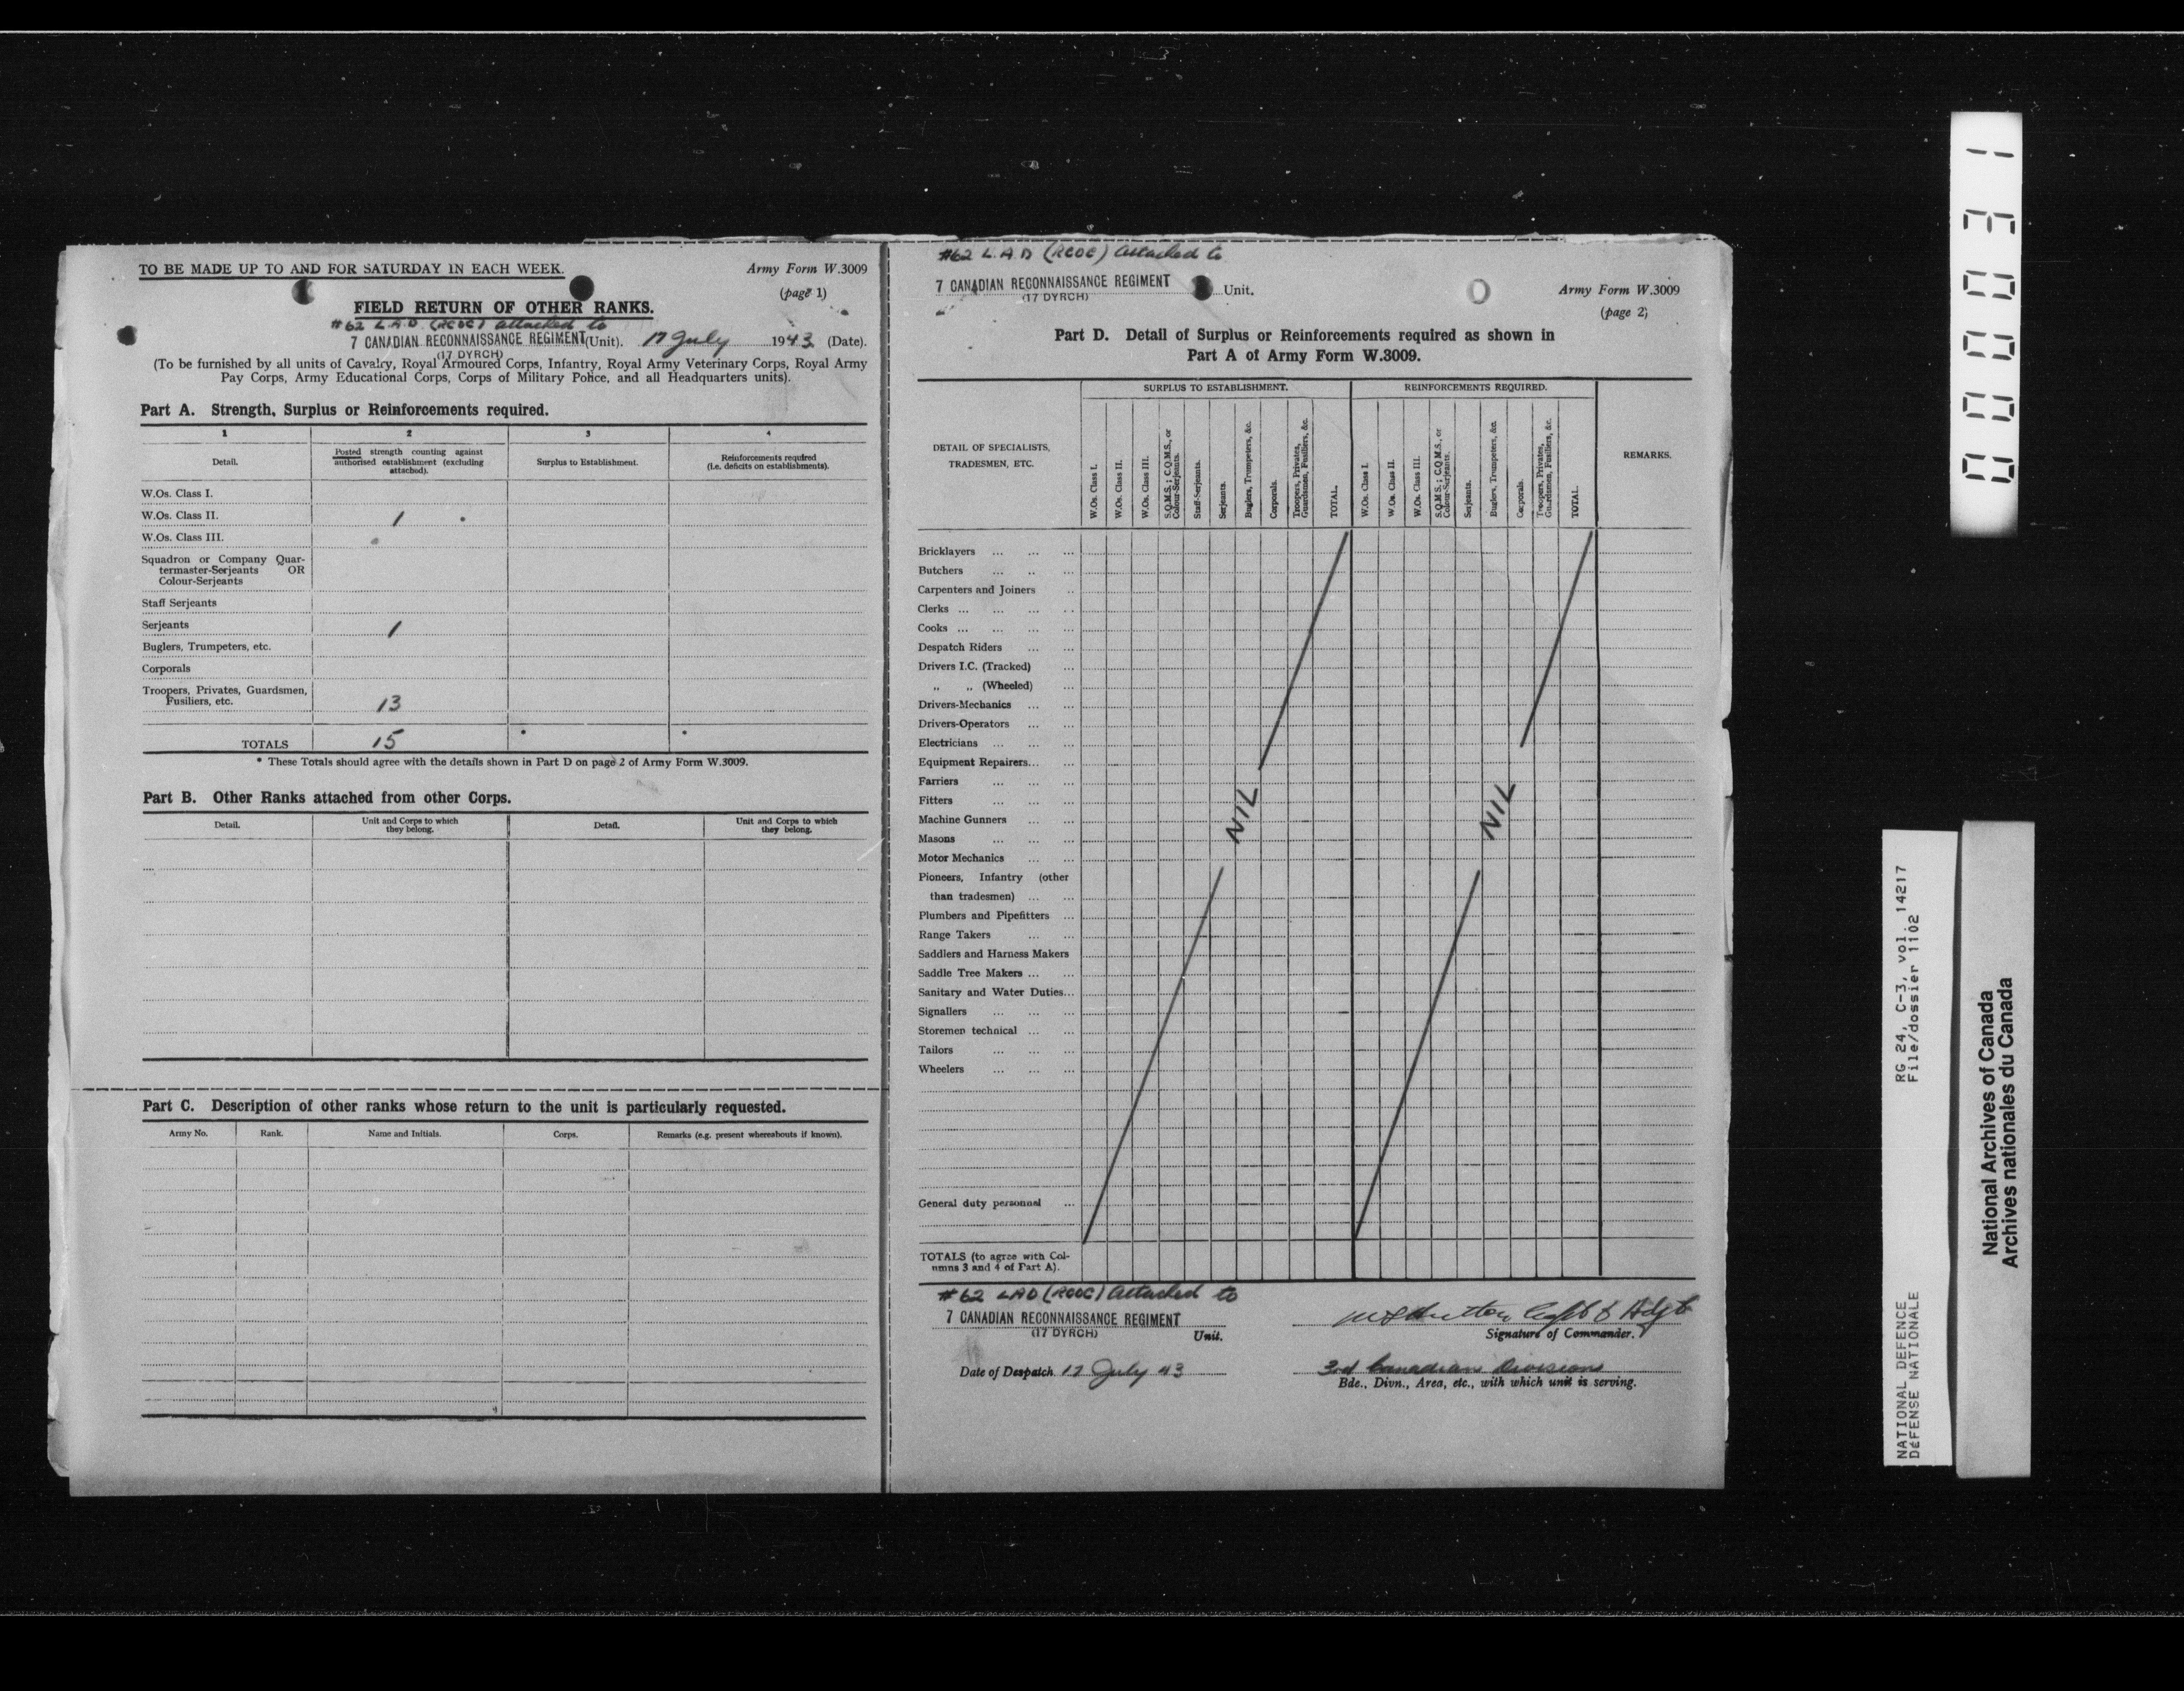 TO BE MADE UP TO AND FOR SATURDAY IN EACH WEEK.
Army Form W.3009
(page 1)
FIELD RETURN OF OTHER RANKS.
#62 L.A.D. (RCOC) attached to
7 CANADIAN RECONNAISSANCE REGIMENT (Unit). 17 July 1943 (Date).
(17 DYRCH)
(To be furnished by all units of Cavalry, Royal Armoured Corps, Infantry, Royal Army Veterinary Corps, Royal Army
Pay Corps, Army Educational Corps, Corps of Military Police, and all Headquarters units).
Part A. Strength, Surplus or Reinforcements required.
1 2 3 4
Detail. Posted strength counting against authorised establishment (excluding attached). Surplus to Establishment. Reinforcements required (i.e. deficits on establishments).
W.Os. Class I.
W.Os. Class II. 1
W.Os. Class III.
Squadron or Company Quar-
termaster-Serjeants OR
Colour-Serjeants
Staff Serjeants
Serjeants 1
Buglers, Trumpeters, etc.
Corporals
Troopers, Privates, Guardsmen,
Fusiliers, etc. 13
TOTALS 15 * *
* These Totals should agree with the details shown in Part D on page 2 of Army Form W.3009.
Part B. Other Ranks attached from other Corps.
Detail. Unit and Corps to which they belong. Detail. Unit and Corps to which they belong.
Part C. Description of other ranks whose return to the unit is particularly requested.
Army No. Rank. Name and Initials. Corps. Remarks (e.g. present whereabouts if known).
#62 L.A.D (RCOC) attached to
7 CANADIAN RECONNAISSANCE REGIMENT Unit.
(17 DYRCH)
Army Form W.3009
(page 2)
Part D. Detail of Surplus or Reinforcements required as shown in
Part A of Army Form W.3009.
DETAIL OF SPECIALISTS, TRADESMEN, ETC.
SURPLUS TO ESTABLISHMENT. REINFORCEMENTS REQUIRED. REMARKS.
W.Os. Class I.
W.Os. Class II.
W.Os. Class III.
S.Q.M.S.; C.Q.M.S., or Colour-Serjeants.
Staff-Serjeants.
Serjeants.
Buglers, Trumpeters, &c.
Corporals.
Troopers, Privates, Guardsmen, Fusiliers, &c.
TOTAL.
W.Os. Class I.
W.Os. Class II.
W.Os. Class III.
S.Q.M.S.; C.Q.M.S., or Colour-Serjeants.
Serjeants.
Buglers, Trumpeters, &c.
Corporals.
Troopers, Privates, Guardsmen, Fusiliers, &c.
TOTAL.
Bricklayers ... ... ...
Butchers ... .. ...
Carpenters and Joiners ..
Clerks ... ... ... ..
Cooks ... ... ... ...
Despatch Riders ... ...
Drivers I.C. (Tracked) ...
„ „ (Wheeled) ...
Drivers-Mechanics ... ...
Drivers-Operators ... ...
Electricians ... ... ...
Equipment Repairers... ...
Farriers ... ... ...
Fitters ... ... ...
Machine Gunners ... ...
Masons ... ... ...
Motor Mechanics ... ...
Pioneers, Infantry (other
than tradesmen) ... ...
Plumbers and Pipefitters ...
Range Takers ... ...
Saddlers and Harness Makers
Saddle Tree Makers ... ...
Sanitary and Water Duties...
Signallers ... ... ...
Storemen technical ... ...
Tailors ... ... ...
Wheelers ... ... ...
NIL
NIL
General duty personnel ...
TOTALS (to agree with Col-
umns 3 and 4 of Part A).
#62 LAD (RCOC) attached to
7 CANADIAN RECONNAISSANCE REGIMENT
(17 DYRCH) Unit.
Capt & Adjt
Signature of Commander.
Date of Despatch 17 July 43
3rd Canadian Division
Bde., Divn., Area, etc., with which unit is serving.
000031
RG 24, C-3, vol. 14217
File/dossier 1102
NATIONAL DEFENCE
DÉFENSE NATIONALE
National Archives of Canada
Archives nationales du Canada